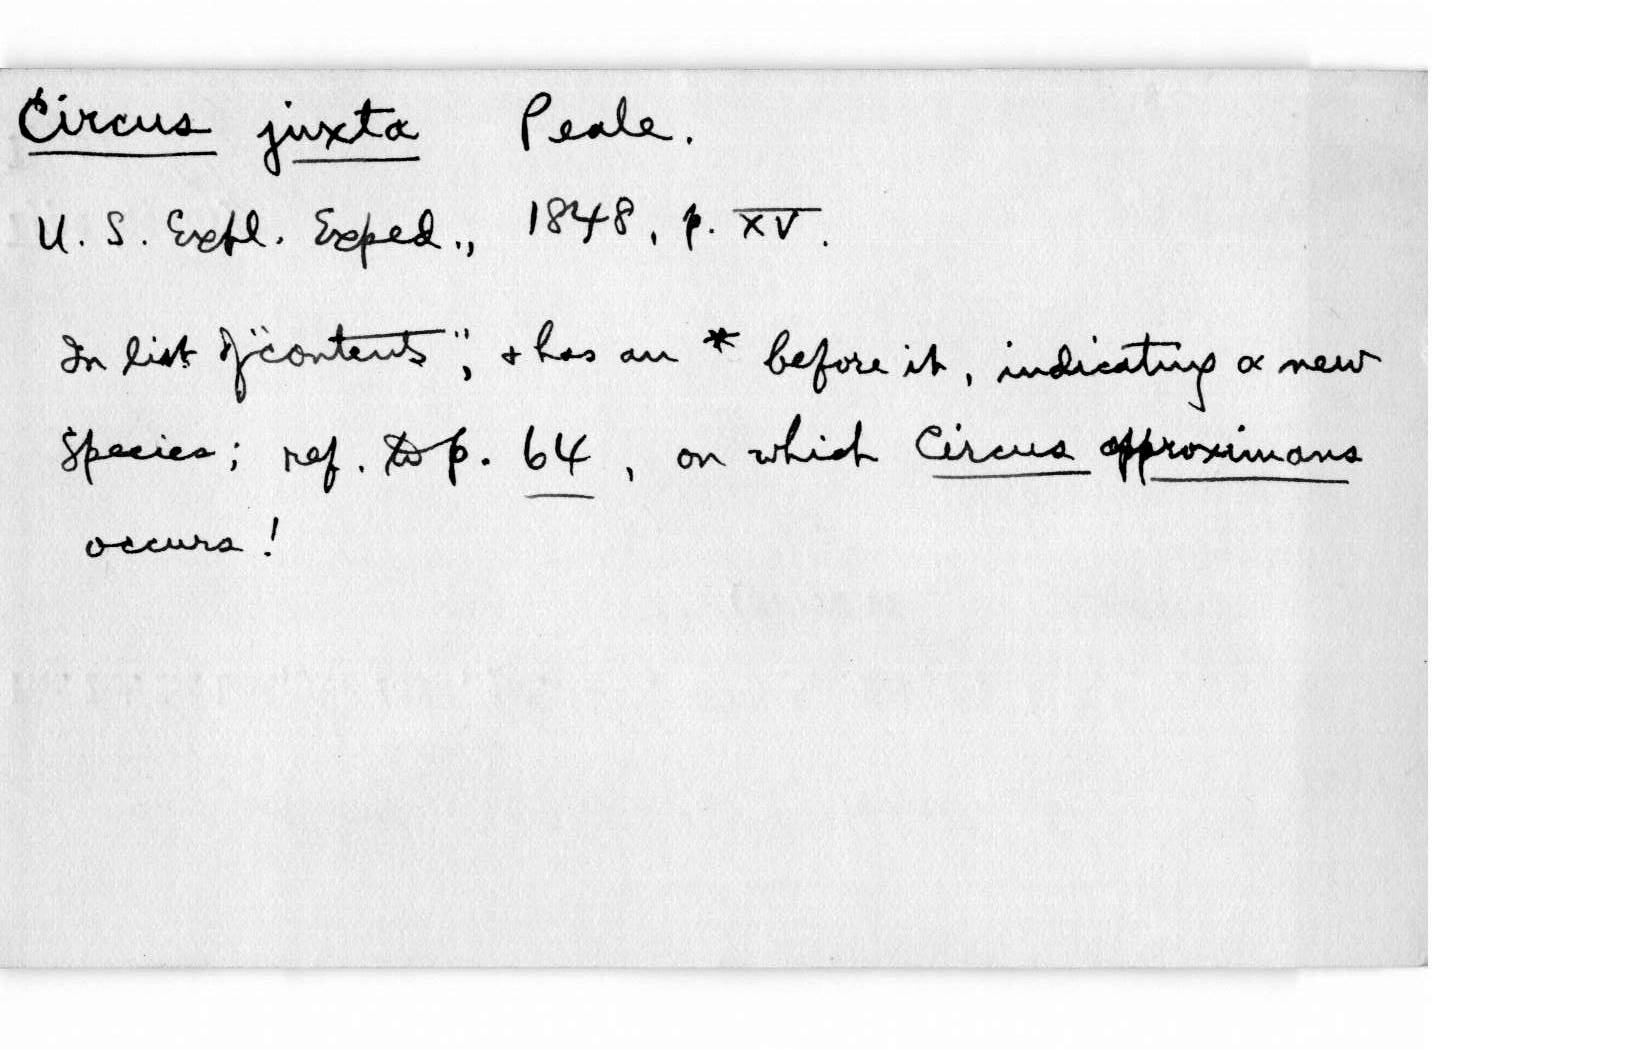 Circus juxta Peale.
U. S. Expl. Exped., 1848, p. XV.
In list of "contents", & has an * before it, indicating a new
species; ref. to p. 64, on which Circus approximans
occurs!